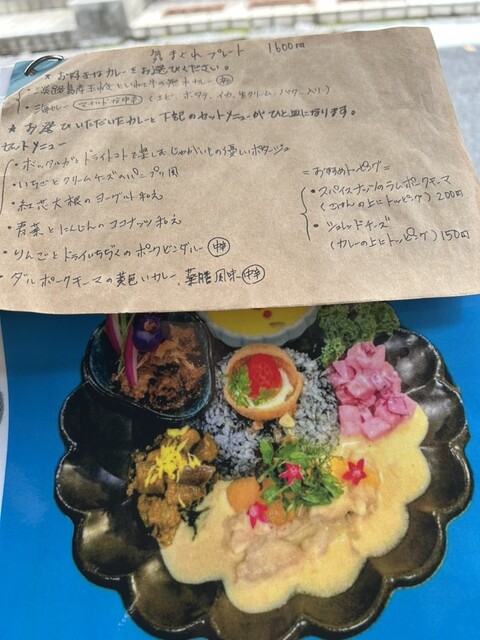 気まぐれプレート 1600円
★お好きなカレーをお選びください。
・淡路島産玉ねぎといわて牛の キカレー 中辛
・海カレー マイルドな中辛 (エビ、ホタテ、イカ、生クリーム、バター入り)
★お選びいただいたカレーと下記のセットメニューがひと皿になります。
セットメニュー
・ポッタルガとドライトマトで楽しむじゃがいもの優しいポタージュ
・いちごとクリームチーズのパニプリ風
・紅芯大根のヨーグルト和え
・青菜とにんじんのココナッツ和え
・りんごとドライいちぢくのポークビンダルー 中辛
・ダルポークキーマの黄色いカレー、薬膳風味 中辛
=おすすめトッピング=
・スパイスナッツのラムポークキーマ
(ごはんの上にトッピング) 200円
・シュレッドチーズ
(カレーの上にトッピング) 150円